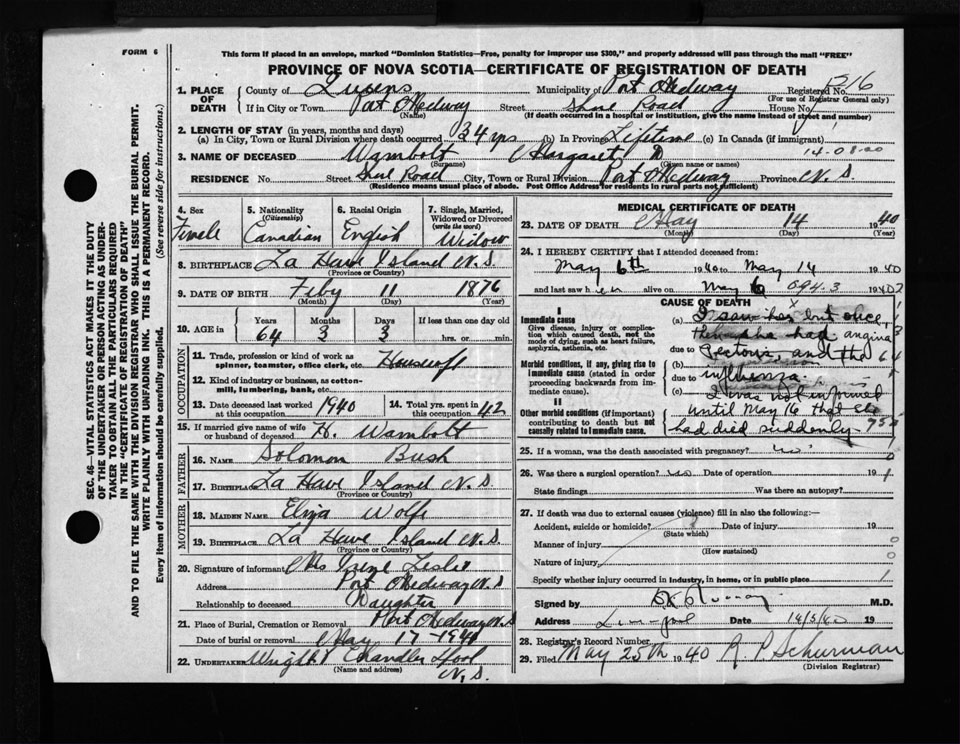 FORM 6
This form if placed in an envelope, marked "Dominion Statistics—Free, penalty for improper use $300," and properly addressed will pass through the mail "FREE"
PROVINCE OF NOVA SCOTIA—CERTIFICATE OF REGISTRATION OF DEATH
SEC. 46—VITAL STATISTICS ACT MAKES IT THE DUTY
OF THE UNDERTAKER OR PERSON ACTING AS UNDER-
TAKER TO OBTAIN ALL THE PARTICULARS REQUIRED
IN THE "CERTIFICATE OF REGISTRATION OF DEATH"
AND TO FILE THE SAME WITH THE DIVISION REGISTRAR WHO SHALL ISSUE THE BURIAL PERMIT.
WRITE PLAINLY WITH UNFADING INK. THIS IS A PERMANENT RECORD.
Every item of information should be carefully supplied. (See reverse side for instructions.)
1. PLACE OF DEATH
County of Queens Municipality of Port Medway Registered No. 216
(For use of Registrar General only)
If in City or Town Port Medway Street Shore Road House No.
(Name) (If death occurred in a hospital or institution, give the name instead of street and number)
2. LENGTH OF STAY (in years, months and days)
(a) In City, Town or Rural Division where death occurred 34 yrs (b) In Province Lifetime (c) In Canada (if immigrant)
3. NAME OF DECEASED Wambolt Margaret M
(Surname) (Given name or names)
RESIDENCE No. Street Shore Road City, Town or Rural Division Port Medway Province N.S.
(Residence means usual place of abode. Post Office Address for residents in rural parts not sufficient)
4. Sex Female
5. Nationality (Citizenship) Canadian
6. Racial Origin English
7. Single, Married, Widowed or Divorced (write the word) Widow
8. BIRTHPLACE La Have Island N.S.
(Province or Country)
9. DATE OF BIRTH Feby 11 1876
(Month) (Day) (Year)
10. AGE in Years 64 Months 3 Days 3 If less than one day old hrs. or min.
OCCUPATION
11. Trade, profession or kind of work as spinner, teamster, office clerk, etc. Housewife
12. Kind of industry or business, as cotton-mill, lumbering, bank, etc.
13. Date deceased last worked at this occupation 1940
14. Total yrs. spent in this occupation 42
15. If married give name of wife or husband of deceased H. Wambolt
FATHER
16. NAME Solomon Bush
17. BIRTHPLACE La Have Island N.S.
(Province or Country)
MOTHER
18. MAIDEN NAME Eliza Wolfe
19. BIRTHPLACE La Have Island N.S
(Province or Country)
20. Signature of informant Mrs Irene Leslie
Address Port Medway N.S
Relationship to deceased Daughter
21. Place of Burial, Cremation or Removal Port Medway N.S
Date of burial or removal May 17-1940
22. UNDERTAKER Wright Chandler
(Name and address) N.S.
MEDICAL CERTIFICATE OF DEATH
23. DATE OF DEATH May 14 1940
(Month) (Day) (Year)
24. I HEREBY CERTIFY that I attended deceased from:
May 6th 1940 to May 14 1940
and last saw her alive on May 6 1940
CAUSE OF DEATH
I
Immediate cause
Give disease, injury or complication which caused death, not the mode of dying, such as heart failure, asphyxia, asthenia, etc.
Morbid conditions, if any, giving rise to immediate cause (stated in order proceeding backwards from immediate cause).
II
Other morbid conditions (if important) contributing to death but not causally related to immediate cause.
(a) I saw her but once,
she had angina
due to Pectoris, and the
(b)
due to influenza.
(c) I was not informed
until May 16 that she
had died suddenly
25. If a woman, was the death associated with pregnancy? no
26. Was there a surgical operation? no Date of operation 19
State findings Was there an autopsy?
27. If death was due to external causes (violence) fill in also the following:—
Accident, suicide or homicide? Date of injury 19
(State which)
Manner of injury
(How sustained)
Nature of injury
Specify whether injury occurred in industry, in home, or in public place
Signed by Murray M.D.
Address Liverpool Date 16/5/40 19
28. Registrar's Record Number
29. Filed May 25th 1940 R. P. Schurman
(Division Registrar)